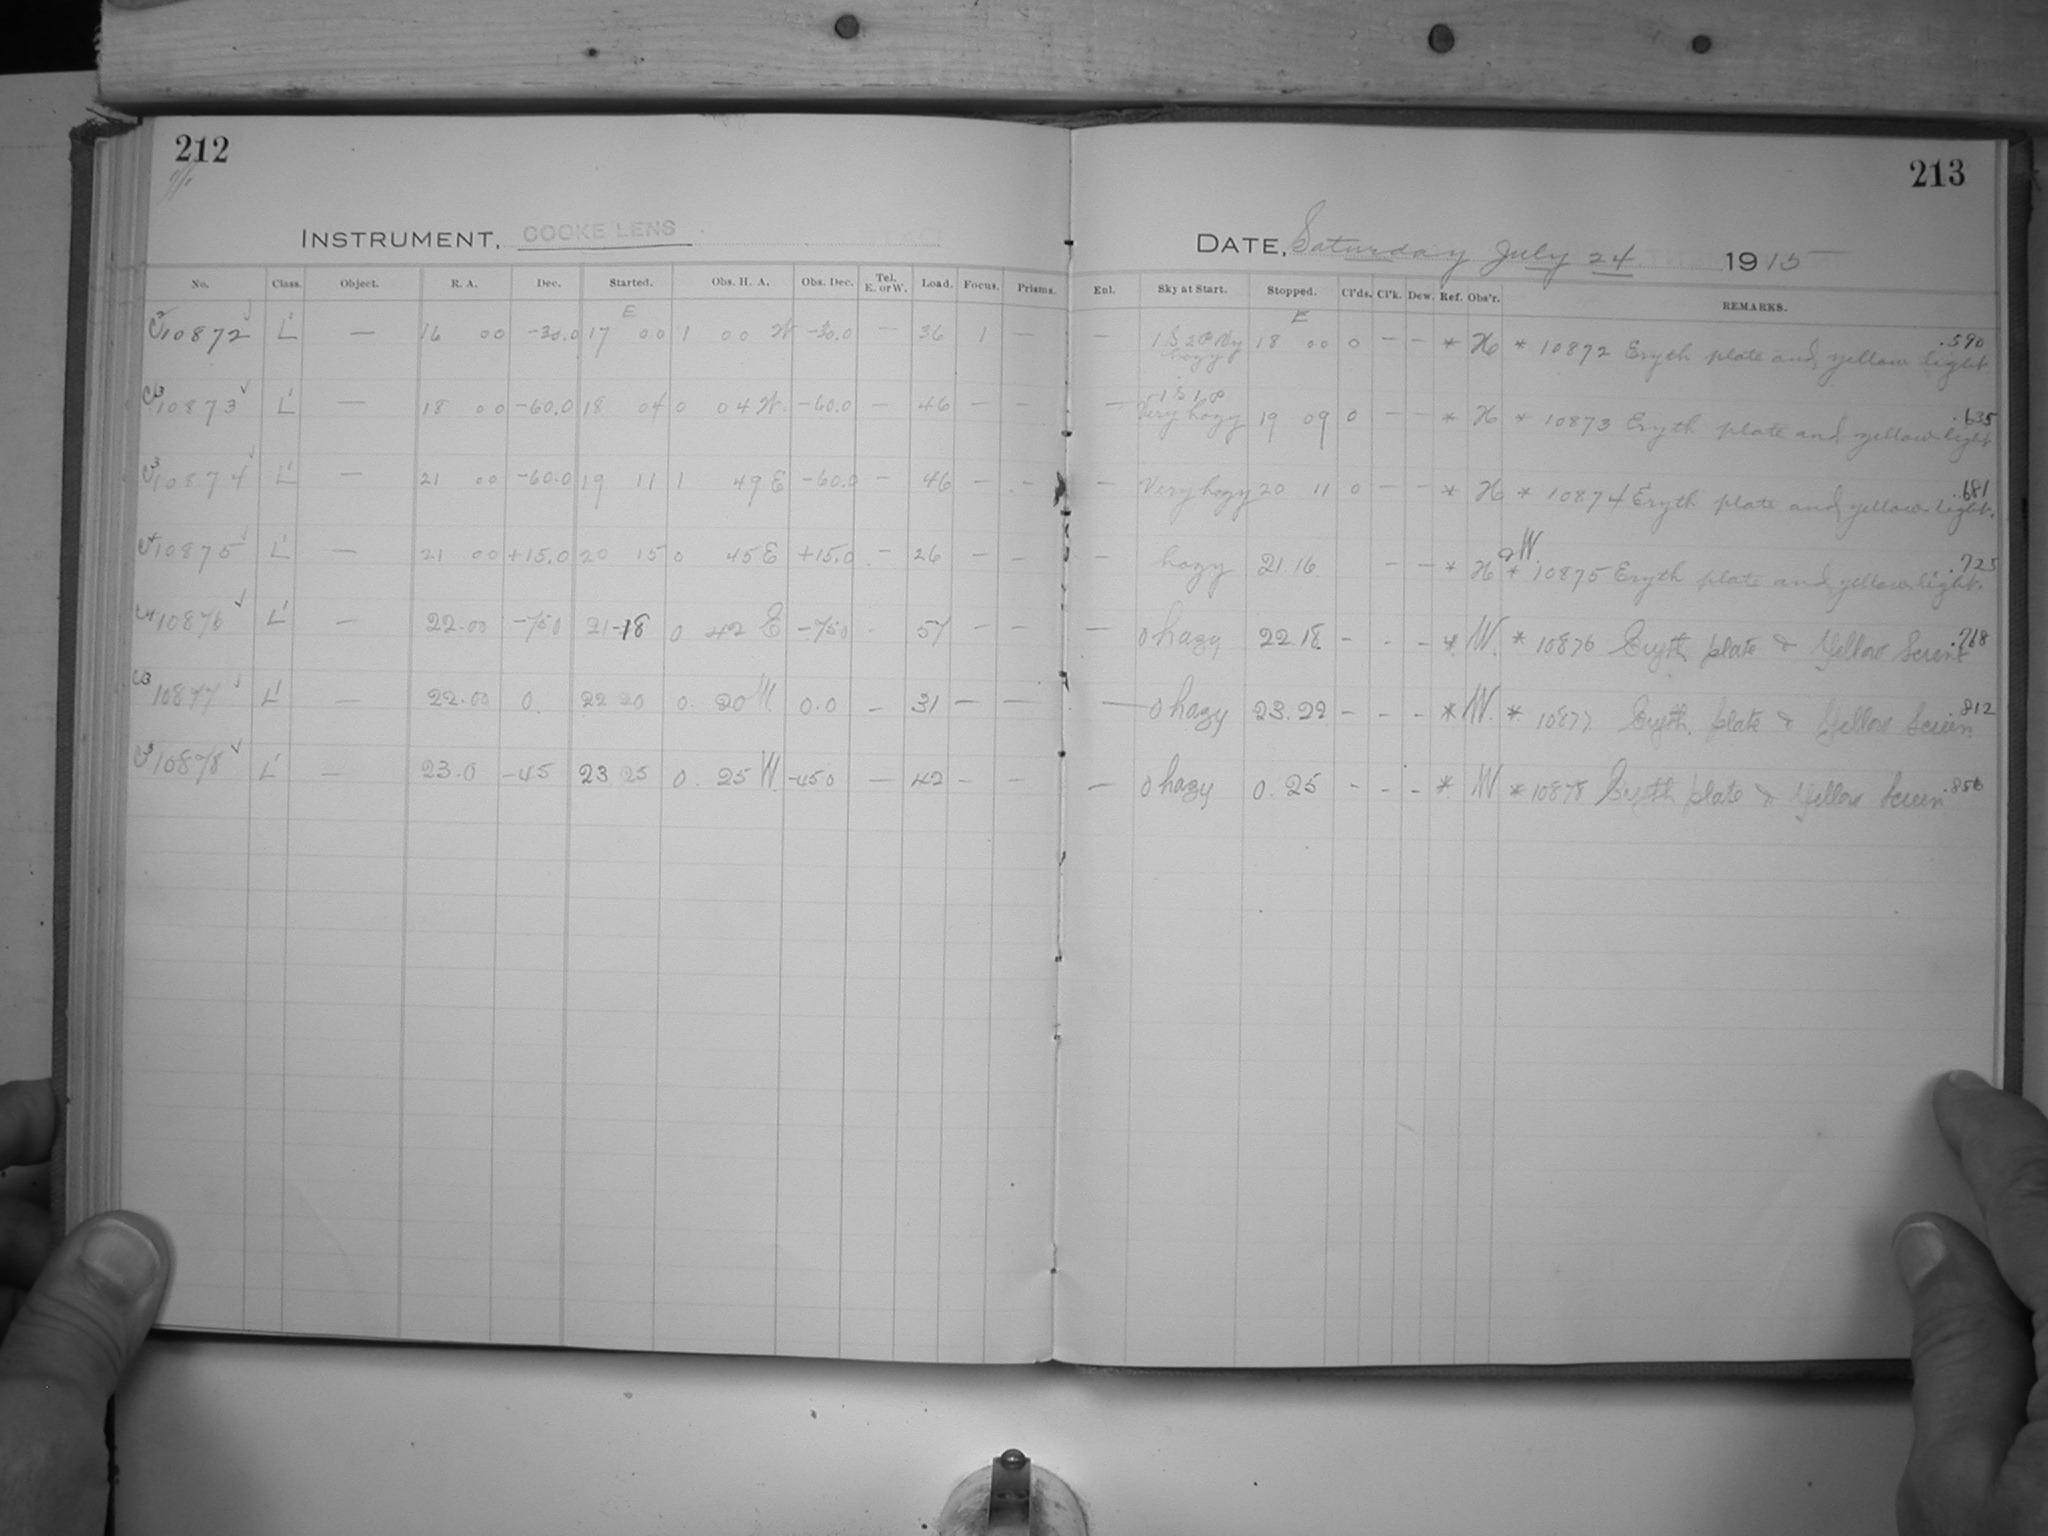 212
213
INSTRUMENT, COOKE LENS
DATE, Saturday July 24 1915
No. Class. Object. R. A. Dec. Started. Obs. H. A. Obs. Dec. Tel. E. or W. Load. Focus. Prisms. Enl. Sky at Start. Stopped. Cl'ds. Cl'k. Dew. Ref. Obs'r. REMARKS.
10872 L' — 16 00 -30.0 17 00 E 1 00 W -30.0 — 36 1 — — hazy 18 00 E 0 — — * H * 10872 Eryth plate and yellow light .590
10873 L' — 18 00 -60.0 18 04 0 04 W. -60.0 — 46 — — — 1 S 1 P Very hazy 19 09 0 — — * H * 10873 Eryth plate and yellow light .635
10874 L' — 21 00 -60.0 19 11 1 49 E -60.0 — 46 — — — Very hazy 20 11 0 — — * H * 10874 Eryth plate and yellow light. .681
10875 L' — 21 00 +15.0 20 15 0 45 E +15.0 — 26 — — — hazy 21.16 — — * H & W * 10875 Eryth plate and yellow light. .725
10876 L' — 22.00 -75.0 21-18 0 42 E -75.0 - 57 — — — 0 hazy 22.18 - - - * W. * 10876 Eryth plate & Yellow Screen .768
10877 L' — 22.00 0. 22 20 0. 20 W 0.0 — 31 — — — 0 hazy 23.22 - - - * W. * 10877 Eryth. plate & Yellow Screen .812
10878 L' — 23.0 -45 23 25 0. 25 W. -45.0 — 42 - — — 0 hazy 0.25 - - - * W * 10878 Eryth plate & Yellow Screen .856